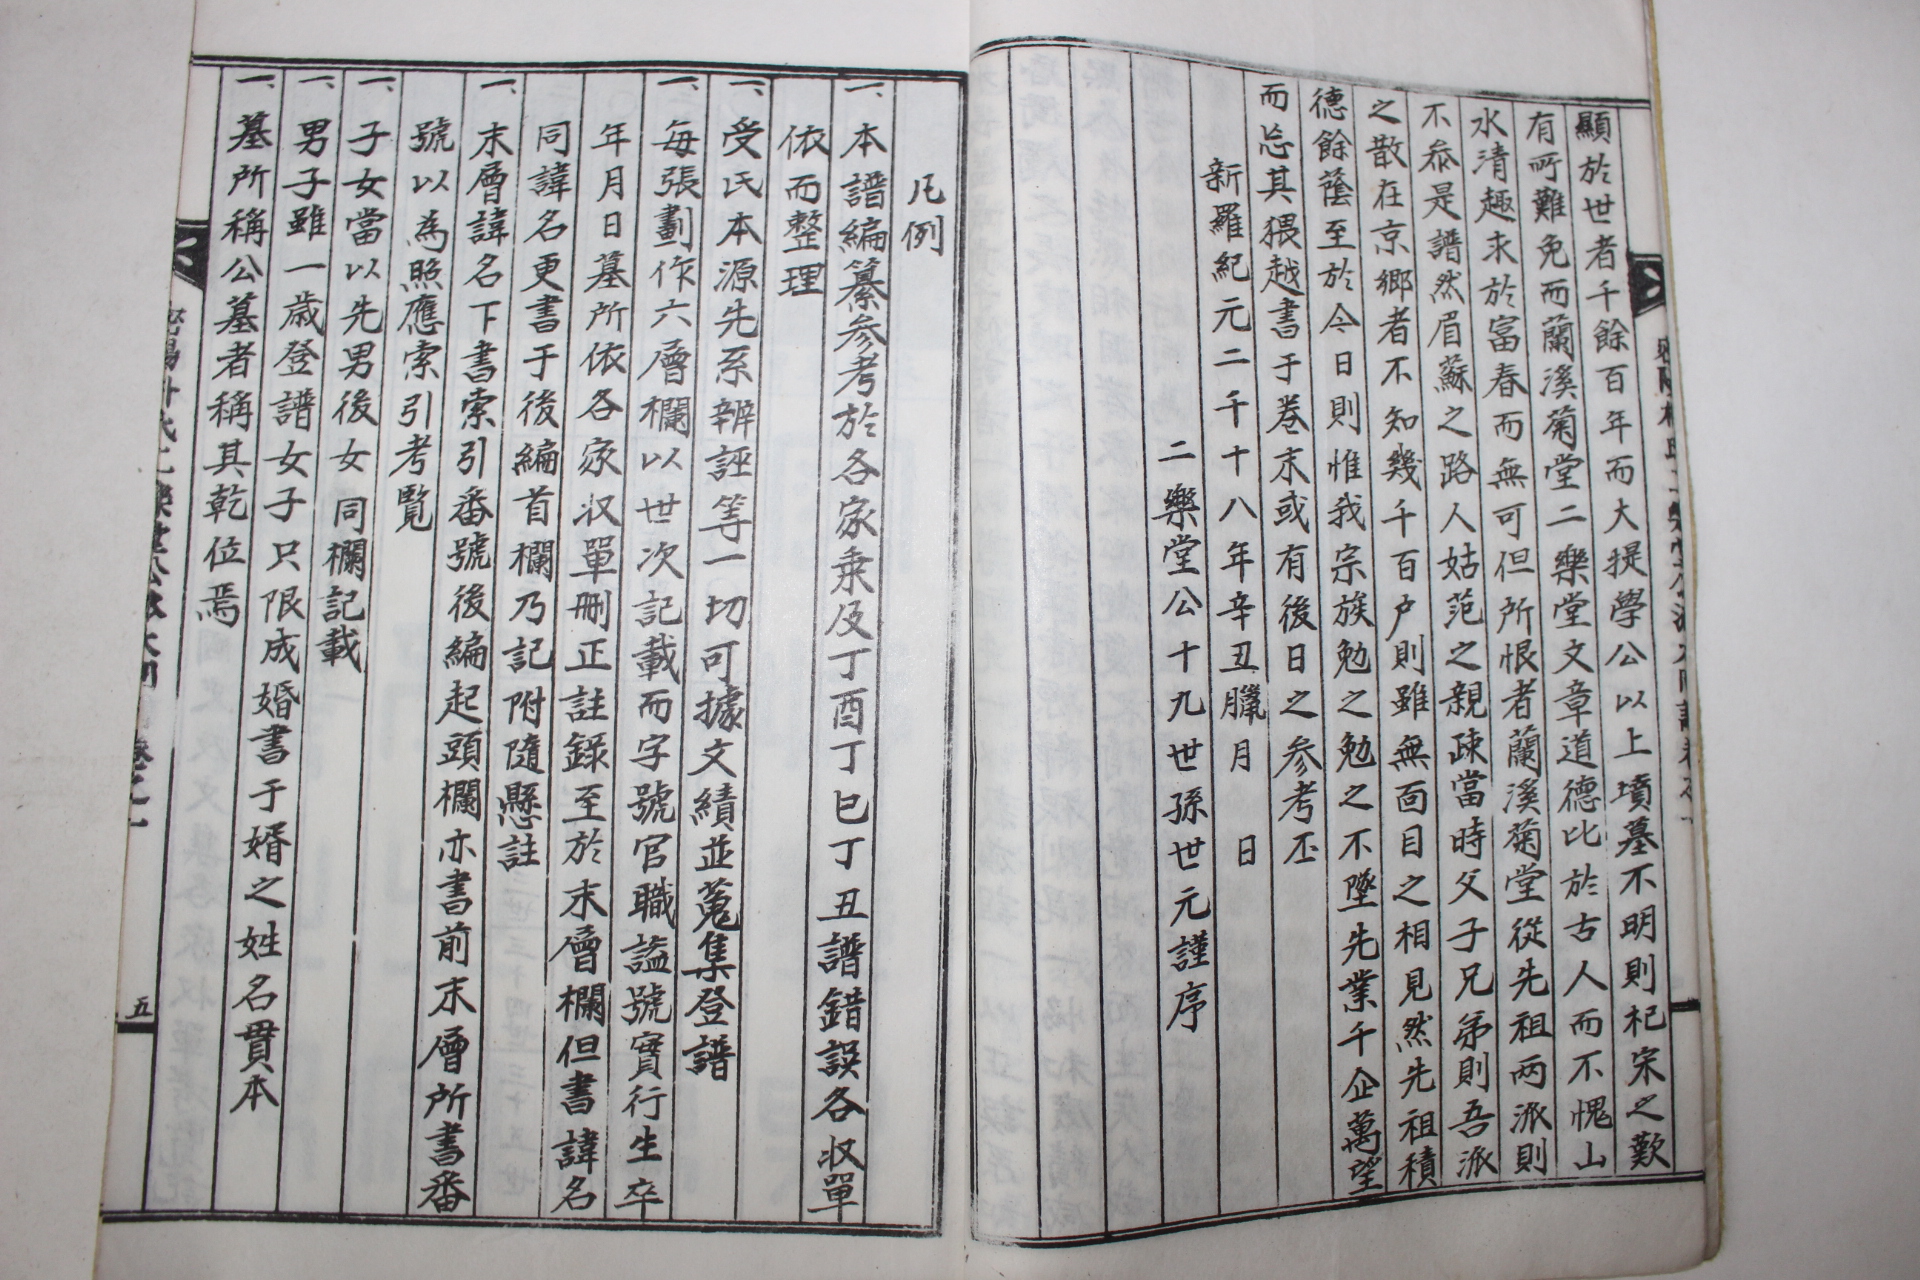 顯於世者千餘百年而大提學公以上墳墓不明則杞宋之歎
有所難免而蘭溪菊堂二樂堂文章道德比於古人而不愧山
水清趣求於富春而無可但所恨者蘭溪菊堂從先祖兩派則
不叅是譜然眉蘇之路人姑范之親疎當時父子兄弟則吾派
之散在京鄉者不知幾千百戶則雖無面目之相見然先祖積
德餘蔭至於今日則惟我宗族勉之勉之不墜先業千企萬望
而忘其猥越書于卷末或有後日之參考丕
新羅紀元二千十八年辛丑臘月　日
二樂堂公十九世孫世元謹序
凡例
一、本譜編纂參考於各家乘及丁酉丁巳丁丑譜錯誤各収單
依而整理
一、受氏本源先系辨誣等一切可據文績並蒐集登譜
一、每張劃作六層欄以世次記載而字號官職諡號實行生卒
年月日墓所依各家収單刪正註錄至於末層欄但書諱名
同諱名更書于後編首欄乃記附隨懸註
一、末層諱名下書索引番號後編起頭欄亦書前末層所書番
號以為照應索引考覧
一、子女當以先男後女　同欄記載
一、男子雖一歲登譜女子只限成婚書于婿之姓名貫本
一、墓所稱公墓者稱其乾位焉
五